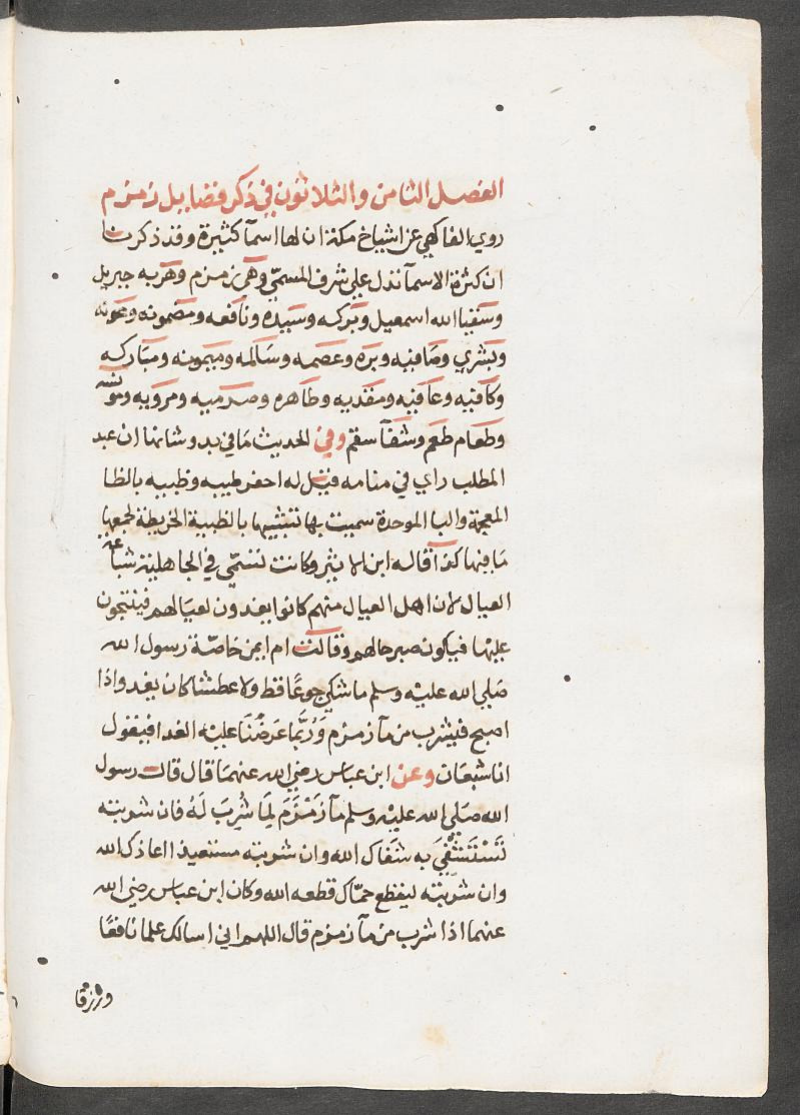 الفصل الثامن والثلاثون في ذكر فضايل زمزم
روي الفاكهي عن اشياخ مكة ان لها اسمآ كثيرة وقد ذكرت
ان كثرة الاسمآ تدل علي شرف المسمّي وهي زمزم وهزمه جبريل
وسقيا الله اسمعيل وبركه وسيده ونافعه ومضمونه وعونه
وبشري وصافيه وبره وعصمه وسالمه وميمونه ومباركه
وكافيه وعافيه ومغذيه وطاهره وحرميه ومرويه ومونسه
وطعام طعم وشفآ سقم وفي الحديث ما في بدو شانها ان عبد
المطلب راي في منامه فقيل له احفر طيبه وظبيه بالظا
المعجمة والبا الموحدة سميت بها تشبيها بالظبية الخريطة لجمعها
ما فيها كذا قاله ابن الاثير وكانت تسمّي في الجاهلية شباعة
العيال لان اهل العيال منهم كانوا يغدون لعيالهم فينتجون
عليها فيكون صبر حالهم وقالت ام ايمن خاصّة رسول الله
صلي الله عليه وسلم ما شكي جوعًا قط ولا عطشا كان يغدو اذا
اصبح فيشرب من مآ زمزم وَرُبَّما عَرَضْنَا عليه الغدا فيقول
انا شبعان وعن ابن عباس رضي الله عنهما قال قال رسول
الله صَلي الله عليه وسلم مآ زَمْزَمَ لِمَا شُرِبَ لَهُ فان شربته
تَسْتَشْفِيَ به شَفَاك الله وان شربته مستعيذا اعاذك الله
وان شربته ليقطع ظمّاك قطعه الله وكان ابن عباس رضي الله
عنهما اذا شرب من مآ زمزم قال اللهم اني اسالك علما نافعًا
ورزقا